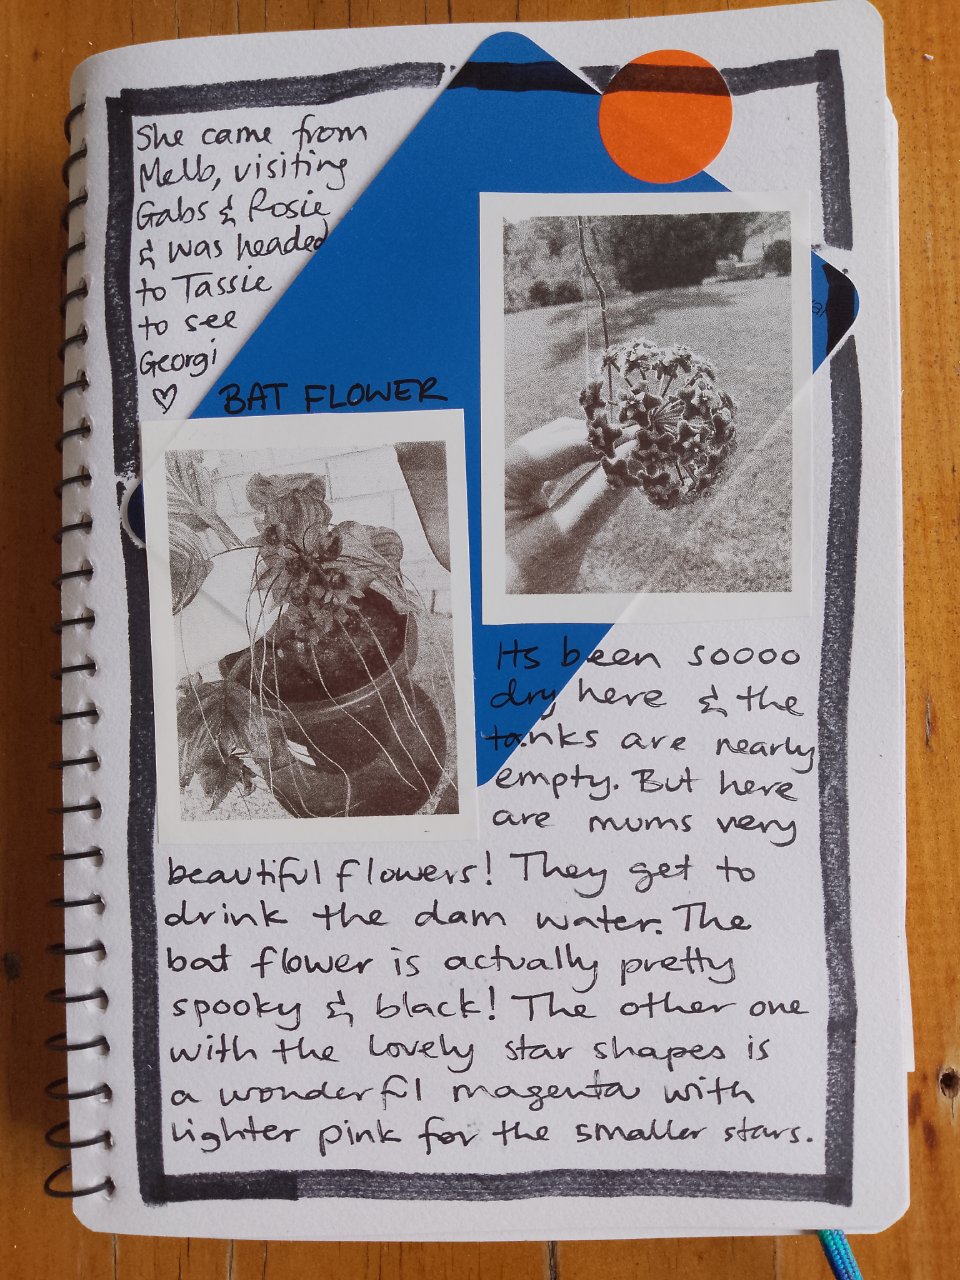 She came from
Melb, visiting
Gabs & Rosie
& was headed
to Tassie
to see
Georgi
♡
BAT FLOWER
Its been soooo
dry here & the
tanks are nearly
empty. But here
are mums very
beautiful flowers! They get to
drink the dam water. The
bat flower is actually pretty
spooky & black! The other one
with the lovely star shapes is
a wonderful magenta with
lighter pink for the smaller stars.